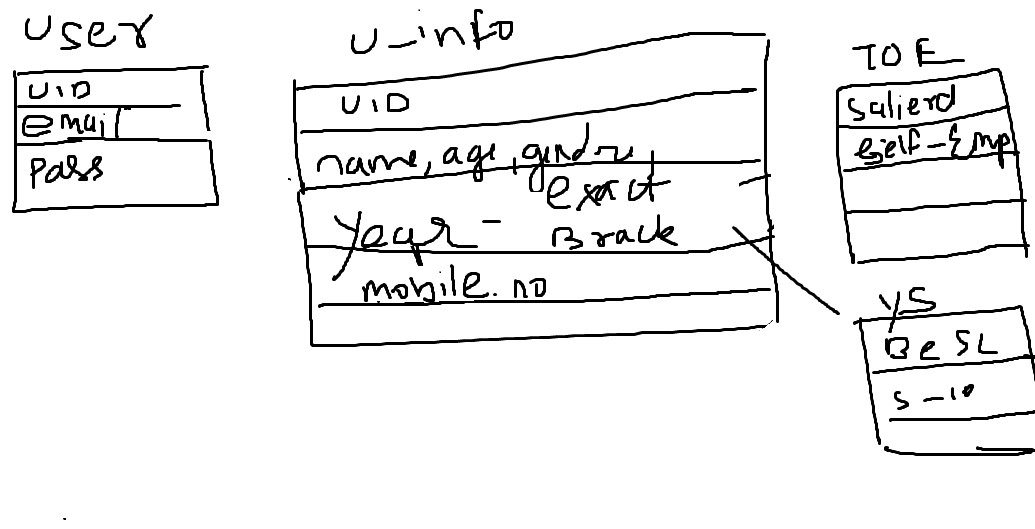 User
UID
email
Pass
U_info
UID
name, age, gendr,
exact
Year - Brack
mobile. no
TOE
Salierd
Self-Emp
YS
Be 5L
5-10